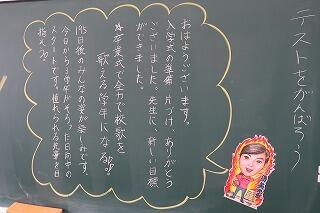 テストをがんばろう
おはようございます。
入学式の準備、片づけ、ありがとう
ございました。先生に、新しい目標
ができました。
☆卒業式で全力で校歌を
歌える学年になる♪♪
195日後のみんなの姿が楽しみです。
今日から3学年がそろった日向中の
スタートです。憧れられる先輩を目
指そう